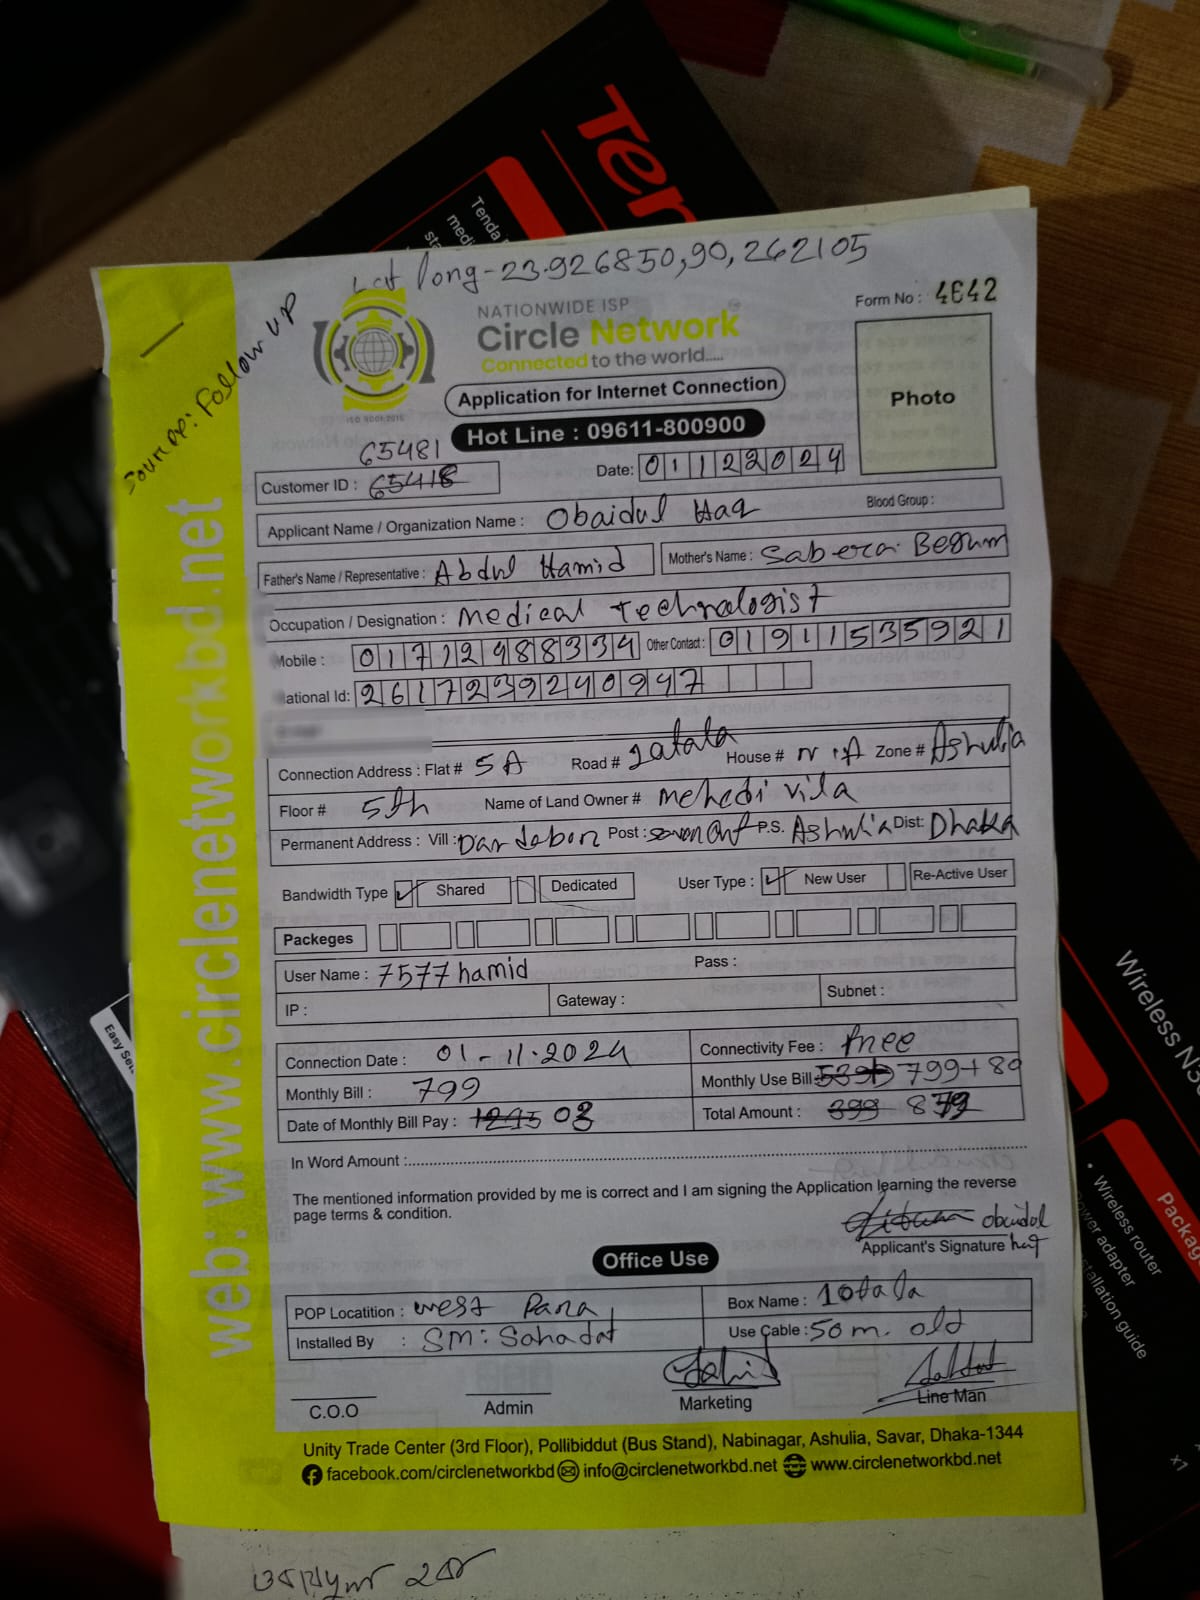 Ten
Tenda
Lat long-23.926850,90,262105
Source: Follow UP
NATIONWIDE ISP
Circle Network
Connected to the world.....
ISO 9001:2015
Form No : 4642
Photo
Application for Internet Connection
Hot Line : 09611-800900
65481
Customer ID : 65418
Date: 01122024
Applicant Name / Organization Name : Obaidul Haq
Blood Group :
Father's Name / Representative : Abdul Hamid
Mother's Name : Sabera Begum
Occupation / Designation : Medical Technologist
Mobile : 01712988334 Other Contact : 01911535921
National Id: 2617239240947
Connection Address : Flat # 5A Road # Jatala House # N.A Zone # Ashulia
Floor # 5th Name of Land Owner # Mehedi vila
Permanent Address : Vill : Post : P.S. Ashulia Dist: Dhaka
Bandwidth Type Shared Dedicated User Type : New User Re-Active User
Packeges
User Name : 7577hamid Pass :
IP : Gateway : Subnet :
Connection Date : 01-11-2024 Connectivity Fee : Free
Monthly Bill : 799 Monthly Use Bill 799+80
Date of Monthly Bill Pay : 03 Total Amount : 399 879
In Word Amount :
The mentioned information provided by me is correct and I am signing the Application learning the reverse
page terms & condition.
obaidul
Applicant's Signature haq
Office Use
POP Locatition : west Para Box Name : 10tala
Installed By : SM: Sahadat Use Cable : 50m. old
C.O.O Admin Marketing Line Man
Unity Trade Center (3rd Floor), Pollibiddut (Bus Stand), Nabinagar, Ashulia, Savar, Dhaka-1344
facebook.com/circlenetworkbd info@circlenetworkbd.net www.circlenetworkbd.net
web: www.circlenetworkbd.net
Wireless N3
Package
• Wireless router
power adapter
installation guide
x1